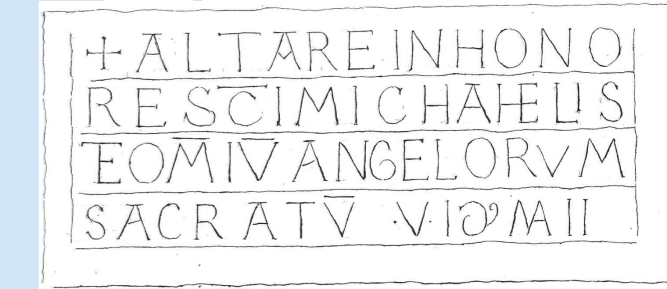 +ALTAREINHONO
RESC̄IMICHAHELIS
ETOM̄IV̄ANGELORVM
SACRATV̄ ·V·I∂ꝰMAII